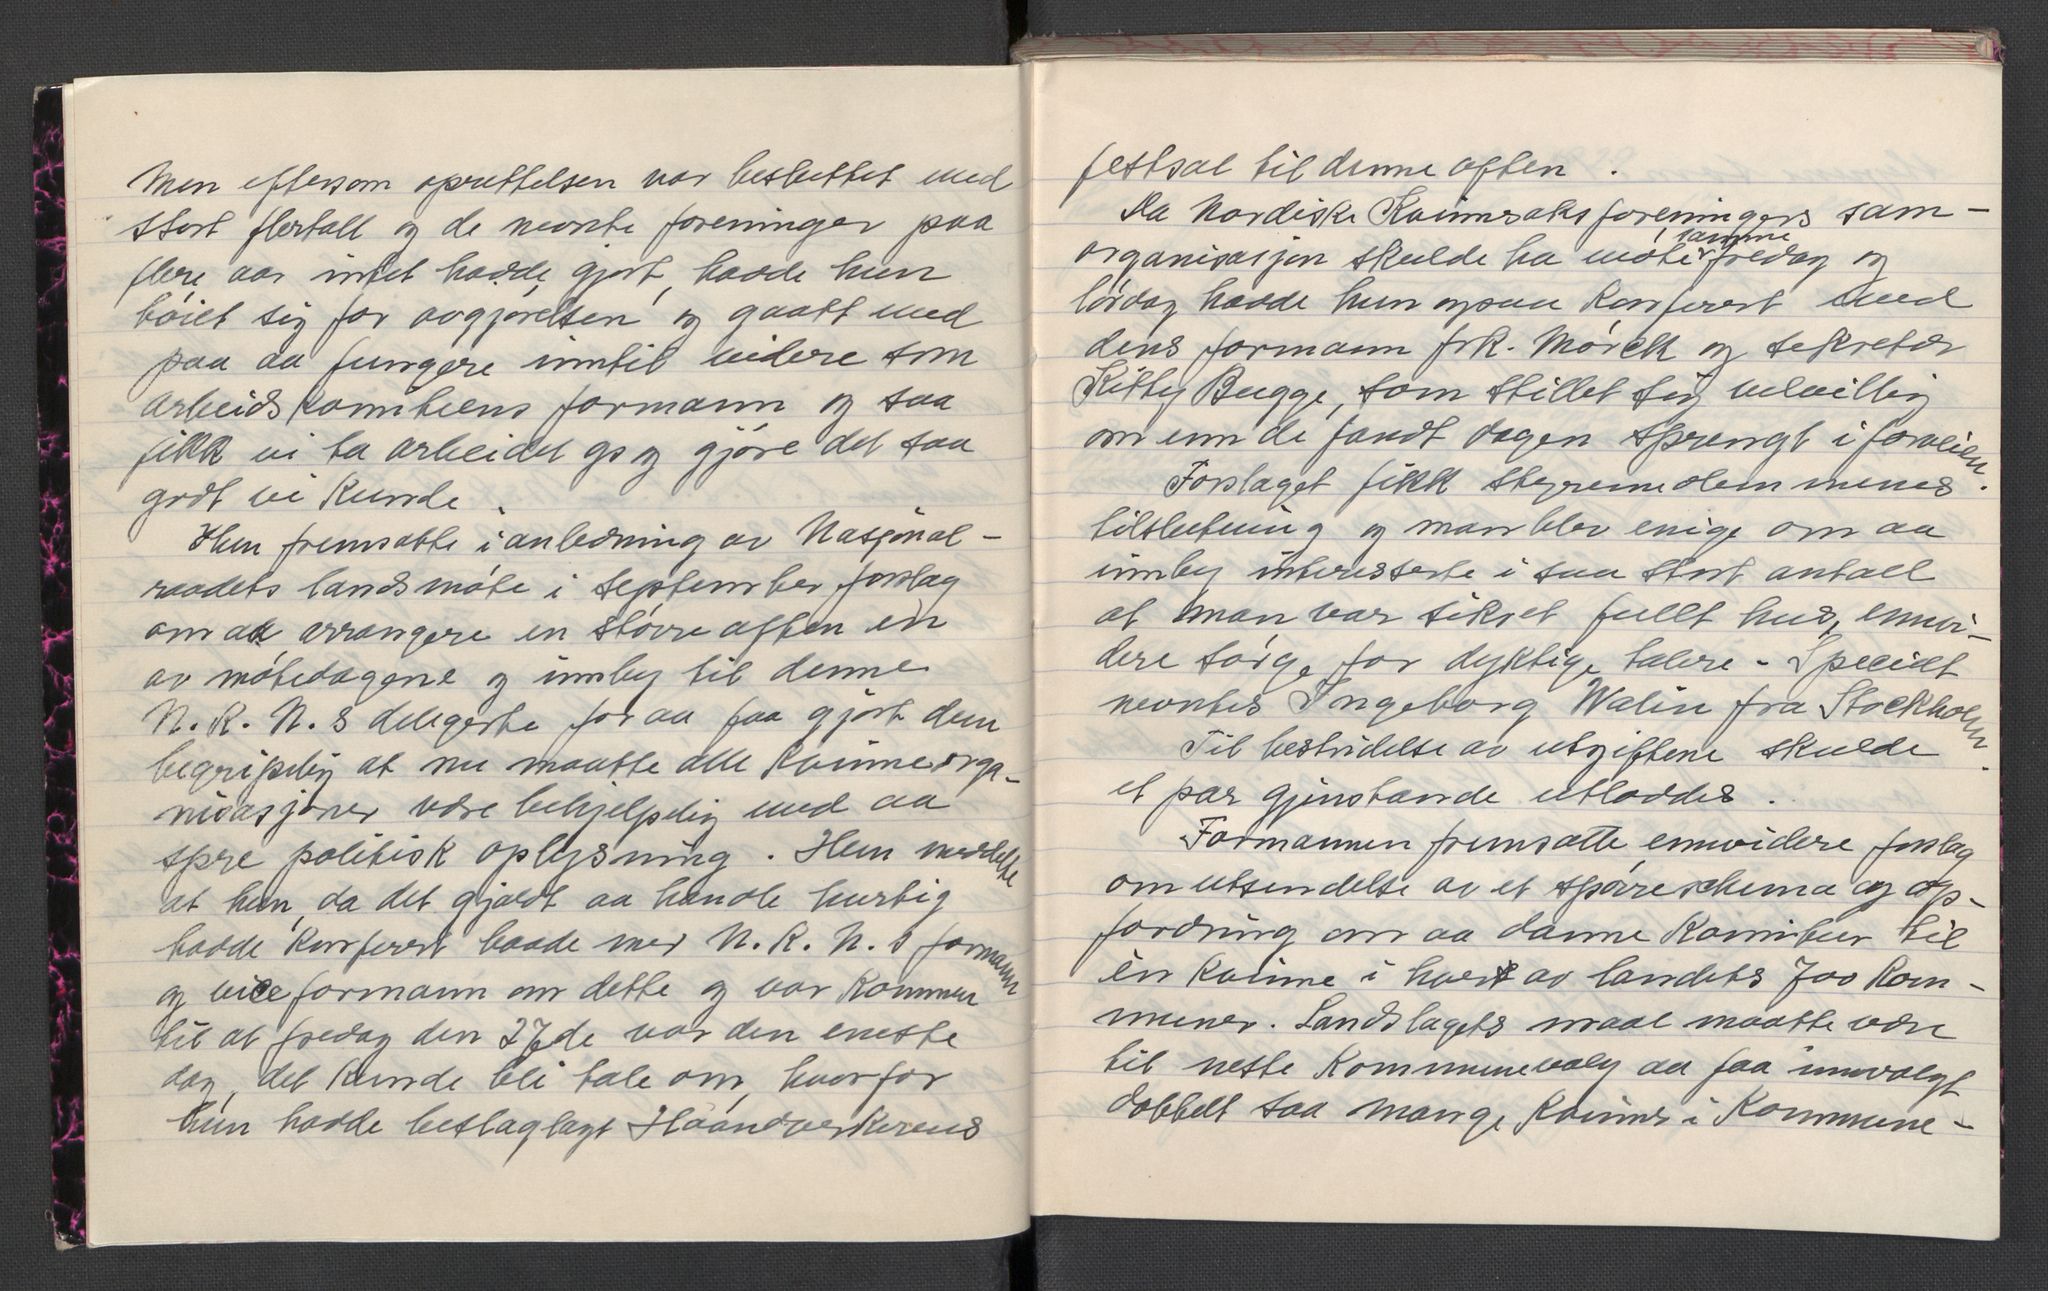 Men eftersom oprettelsen var besluttet med
stort flertall og de nevnte foreninger paa
flere aar intet hadde gjort, hadde hun
bøiet sig for avgjørelsen og gaatt med
paa aa fungere inntil videre som
arbeidskomiteens formann og saa
fikk vi ta arbeidet og gjøre det saa
godt vi kunde.
Hun fremsatte i anledning av Nasjonal-
raadets landsmøte i september forslag
om aa arrangere en større aften en
av møtedagene og innby til denne
N.K.N.s delegerte for aa faa gjort dem
begripelig at nu maatte alle kvinneorga-
nisasjoner være behjelpelig med aa
spre politisk oplysning. Hun meddelte
at hun, da det gjaldt aa handle hurtig
hadde konferert baade med N.K.N.s formann
og viceformann om dette og var kommen
til at fredag den 27de var den eneste
dag, det kunde bli tale om, hvorfor
hun hadde beslaglagt Haandverkerens
festsal til denne aften.
Da Nordiske Kvinnesaksforeningers sam-
organisasjon skulde ha møter samme fredag og
lørdag hadde hun ogsaa konferert med
dens formann frk. Mørck og sekretær
Kitty Bugge, som stillet sig velvillig
om enn de fandt dagen sprengt i forveien.
Forslaget fikk styremedlemmenes
tilslutning og man blev enige om aa
innby interesserte i saa stort antall
at man var sikret fullt hus, envi-
dere sørge for dyktige talere - Specielt
nevntes Ingeborg Walin fra Stockholm.
Til bestridelse av utgiftene skulde
et par gjenstande utloddes.
Formannen fremsatte envidere forslag
om utsendelse av et spørreschema og op-
fordring om aa danne komiteer til
én kvinne i hver av landets 700 kom-
muner. Landslagets maal maatte være
til neste kommunevalg aa faa innvalgt
dobbelt saa mange kvinner i kommune-